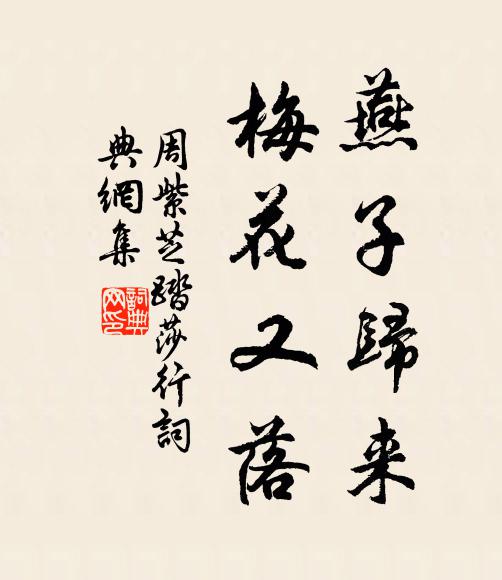 燕子歸来
梅花又落
周紫芝踏莎行詞
典網集
詞典网印